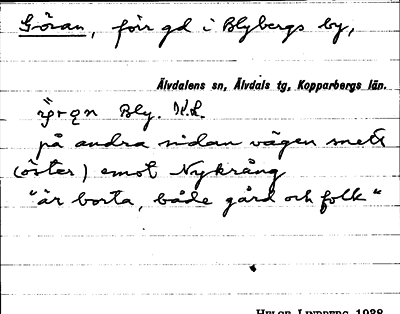 Göran, förr gd i Blybergs by,
Älvdalens sn, Älvdals tg, Kopparbergs län.
Bly. H.L.
på andra sidan vägen snett
(öster) emot Nykräng
"är borta, både gård och folk"
HELGE LINDBERG 1938